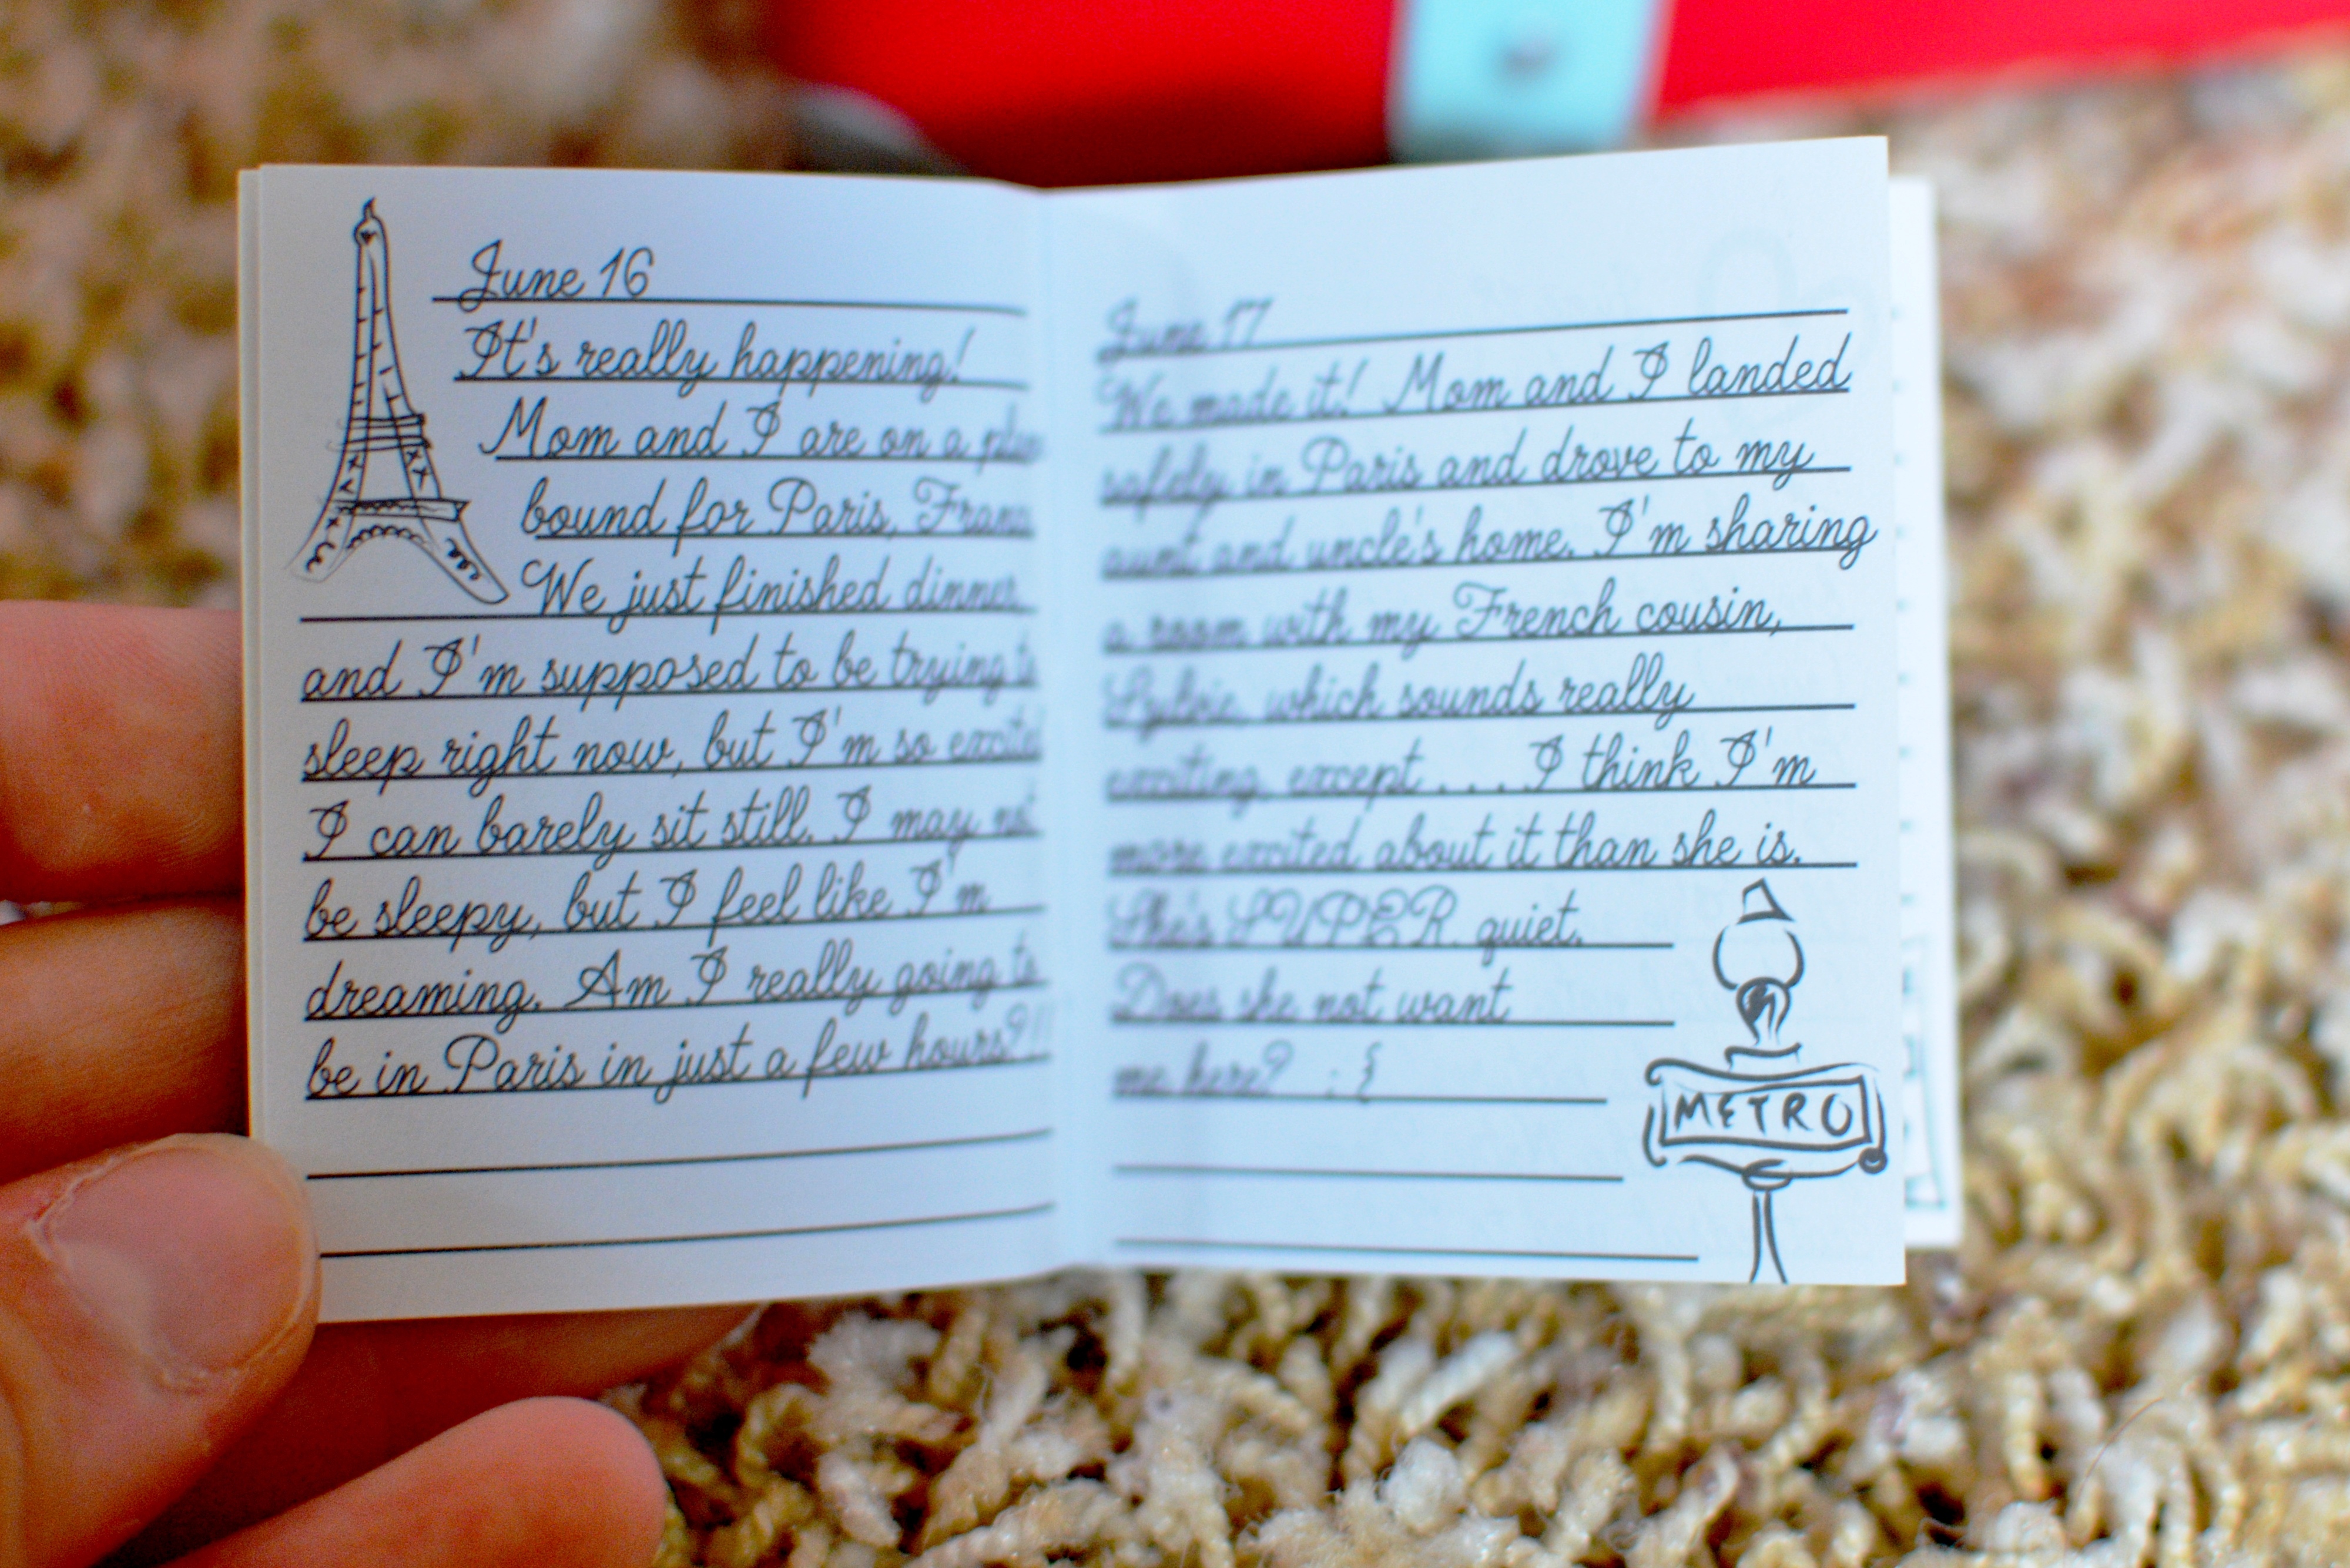 June 16
It's really happening!
Mom and I are on a plane
bound for Paris, France
We just finished dinner
and I'm supposed to be trying to
sleep right now, but I'm so excited
I can barely sit still. I may not
be sleepy, but I feel like I'm
dreaming. Am I really going to
be in Paris in just a few hours?!!
June 17
We made it! Mom and I landed
safely in Paris and drove to my
aunt and uncle's home. I'm sharing
a room with my French cousin,
Sylvie, which sounds really
exciting, except . . . I think I'm
more excited about it than she is.
She's SUPER quiet.
Does she not want
me here? : {
METRO